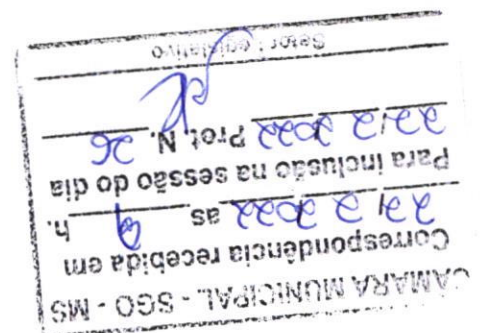 CÂMARA MUNICIPAL - SGO - MS
Correspondência recebida em
22/2 2022 as 9 h.
Para inclusão na sessão do dia
22/2 2022 Prot. N. 26
Setor Legislativo